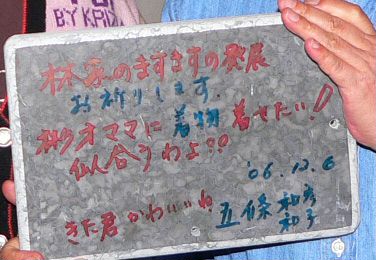 BY KRIZ
林家のますますの発展
お祈りします。
桃才ママに着物着せたい!
似合うわよ??
'06.12.6
きた君かわいいね。
五條和彦
和子